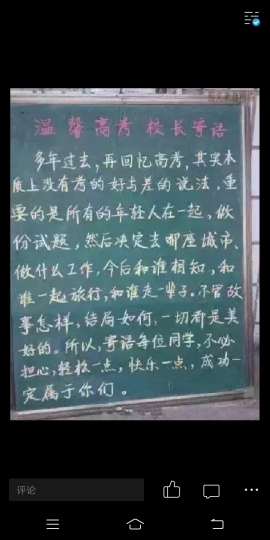 温馨高考 校长寄语
多年过去,再回忆高考,其实本
质上没有考的好与差的说法,重
要的是所有的年轻人在一起,做
份试题,然后决定去哪座城市,
做什么工作,今后和谁相知,和
谁一起旅行,和谁走一辈子。不管故
事怎样,结局如何,一切都是美
好的。所以,寄语每位同学,不必
担心,轻松一点,快乐一点,成功一
定属于你们。
评论